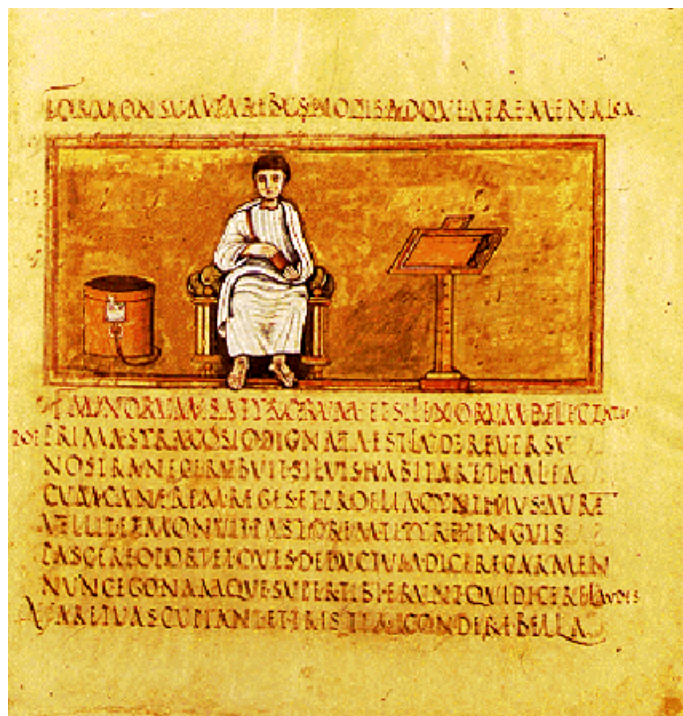 FORMONSUM PARIBUS NODIS ADQUE AERE MENALCA
SATYRORUM ET SILENORUM DELECTATIO
PRIMA SYRACOSIO DIGNATA EST LUDERE VERSU
NOSTRA NEC ERUBUIT SILVIS HABITARE THALEA
CUM CANEREM REGES ET PROELIA CYNTHIUS AURE
VELLIT ET ADMONUIT PASTOREM TITYRE PINGUIS
PASCERE OPORTET OVIS DEDUCTUM DICERE CARMEN
NUNC EGO NAMQUE SUPER TIBI ERUNT QUI DICERE LAUDES
VARE TUAS CUPIANT ET TRISTIA CONDERE BELLA